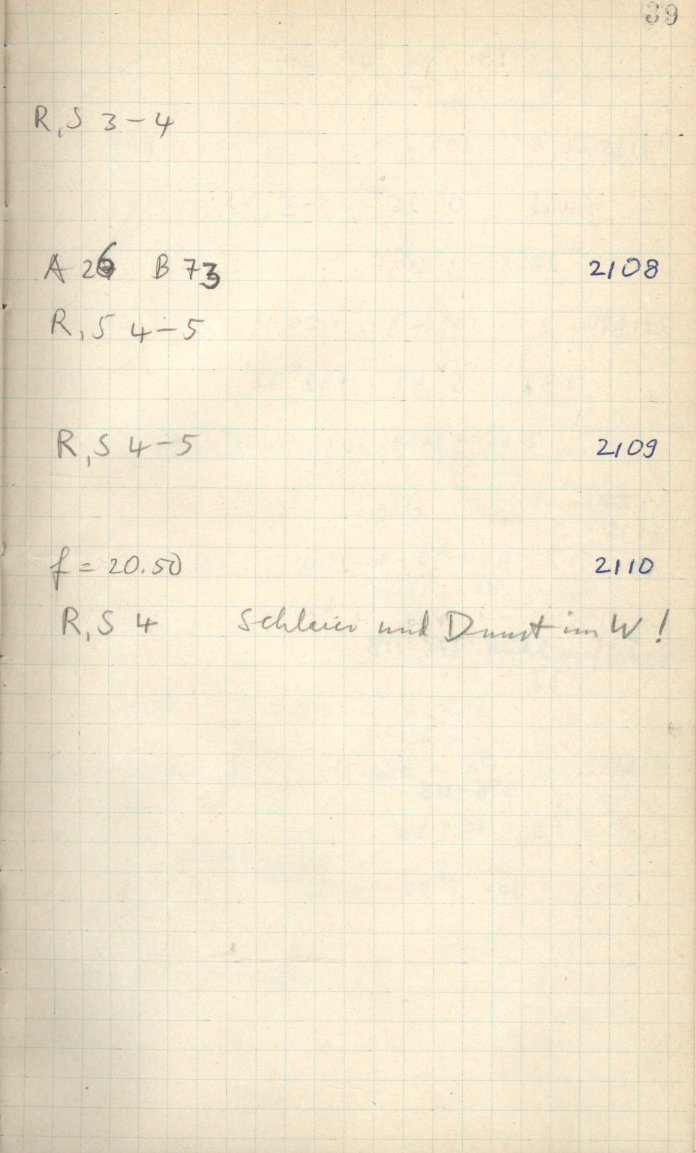 39
R, S 3-4
A 26 B 73 2108
R, S 4-5
R, S 4-5 2109
f = 20.50 2110
R, S 4 Schleier und Dunst im W!